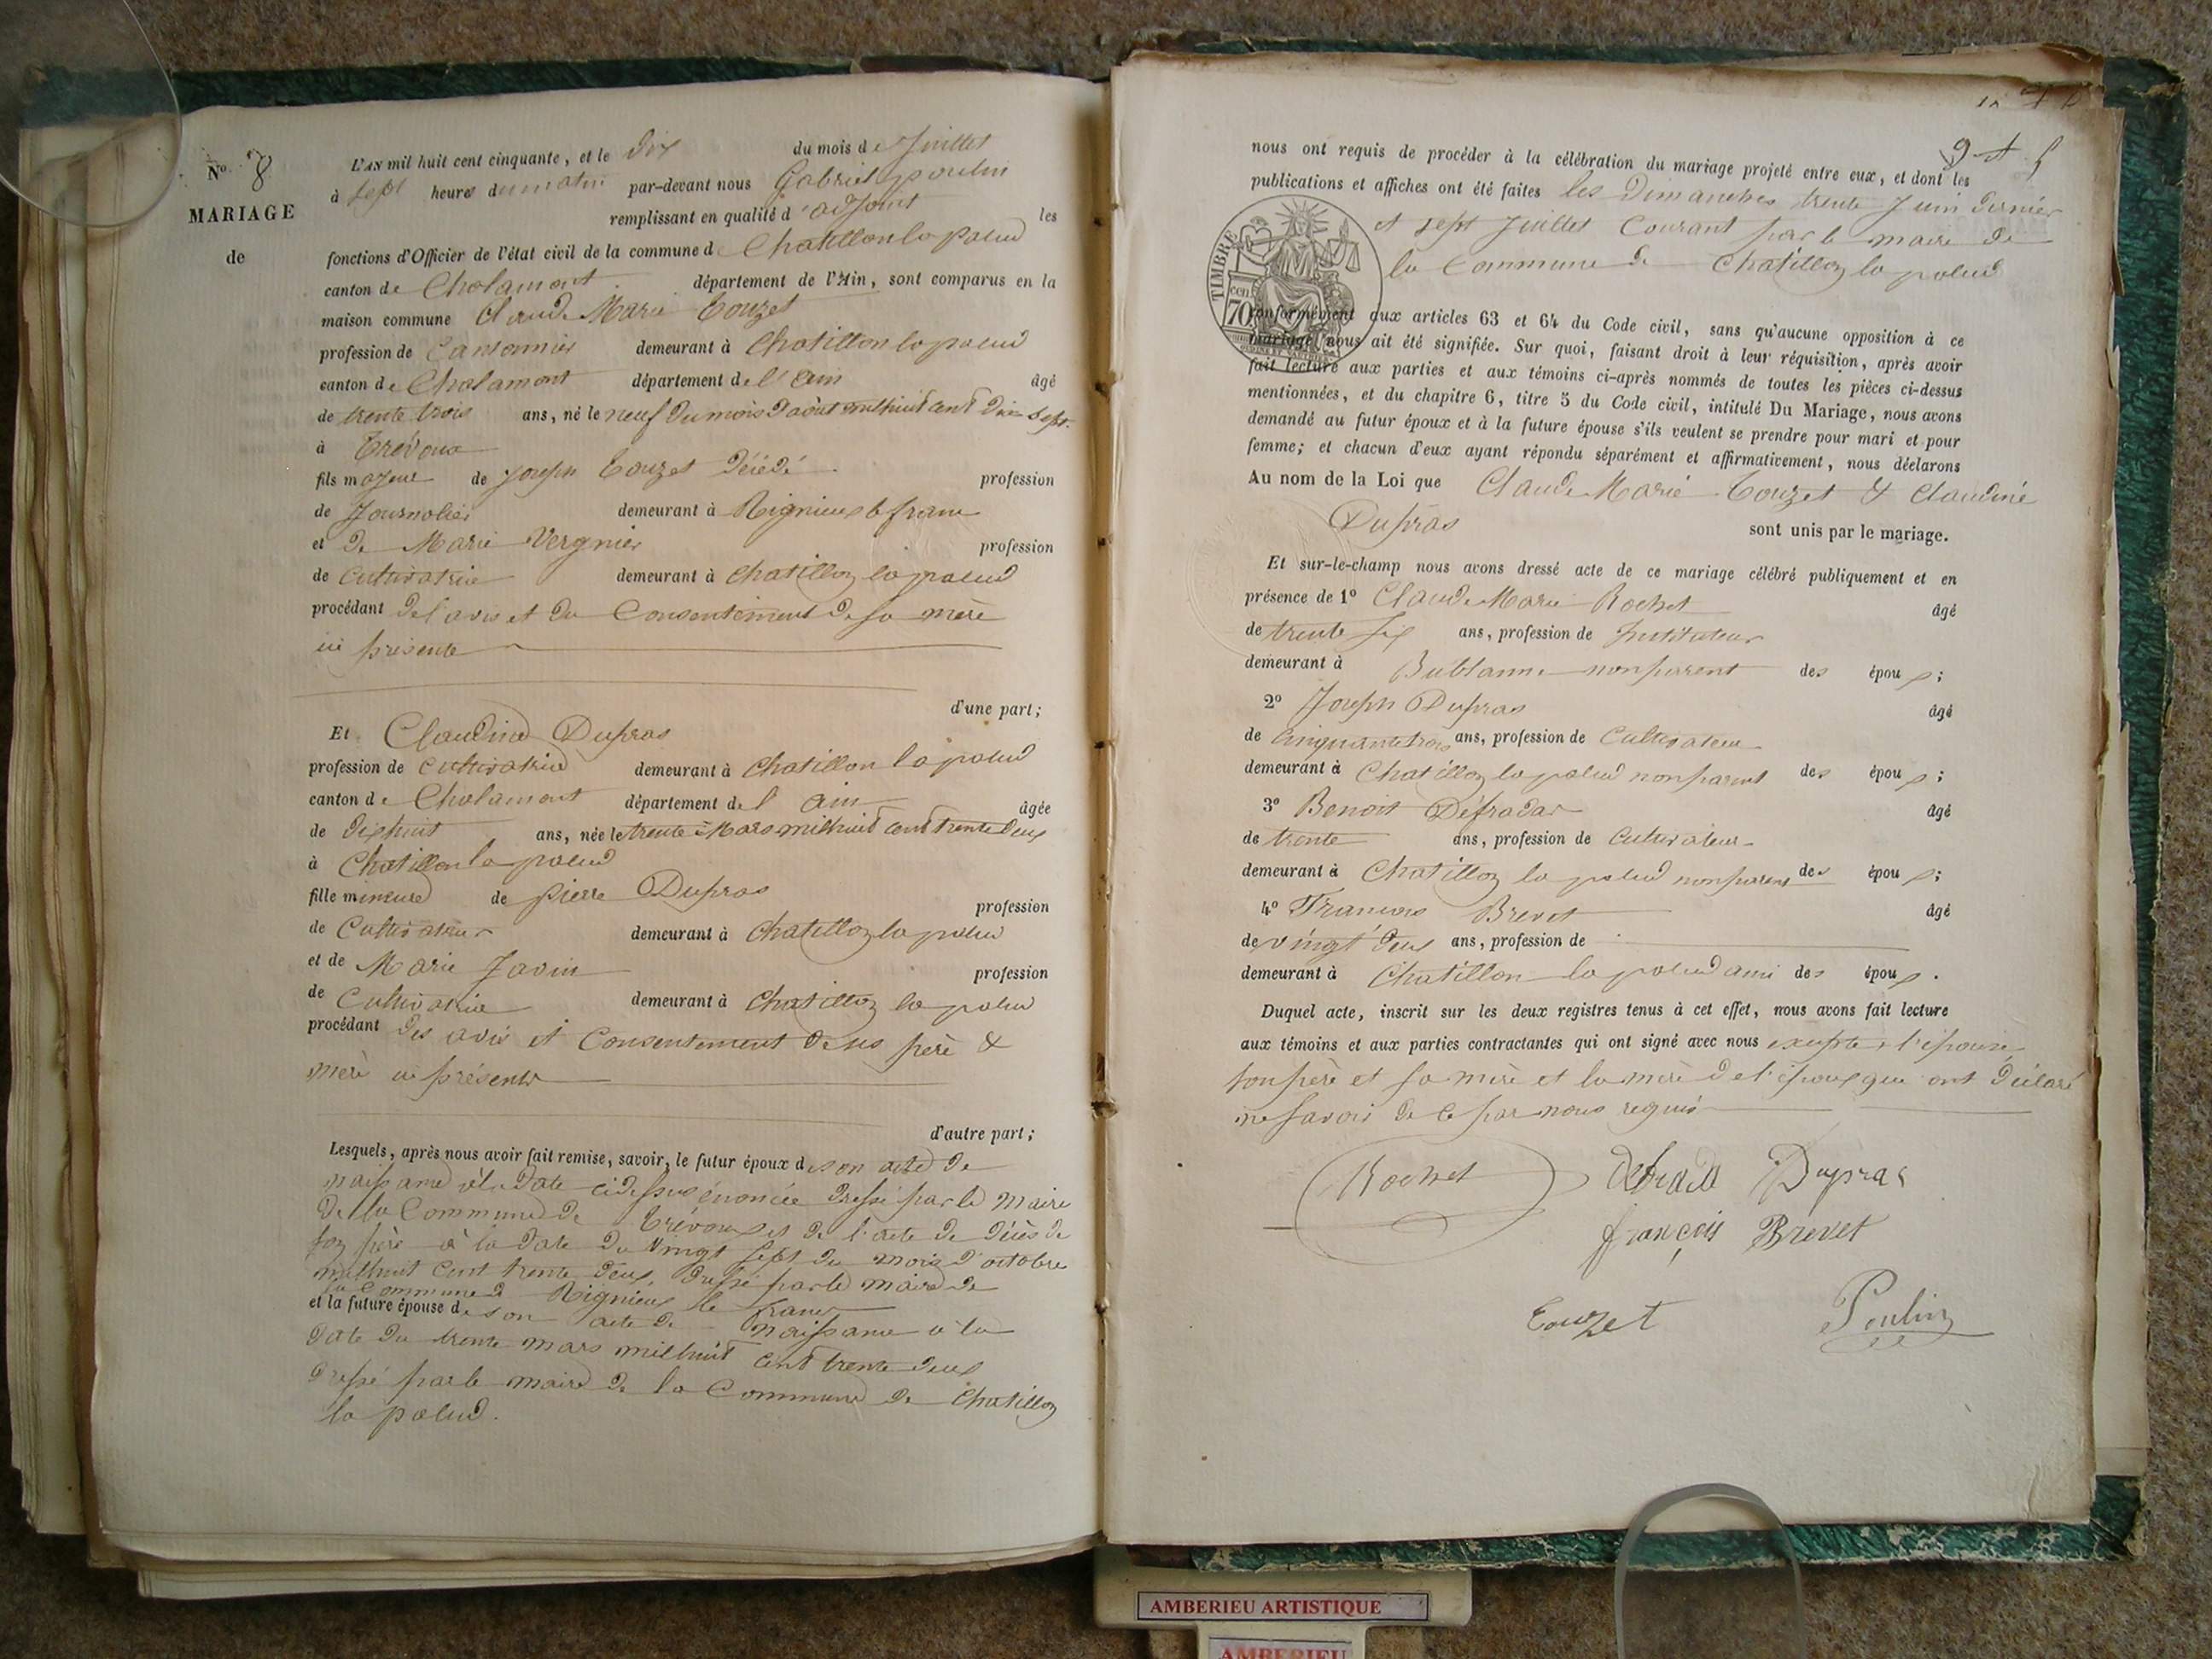 No 8
MARIAGE
de
L'AN mil huit cent cinquante, et le Dix du mois de Juillet
à Sept heures du matin par-devant nous Gabriel poulin
remplissant en qualité d'adjoint les
fonctions d'Officier de l'état civil de la commune d Chatillon la palud
canton de Chalamont département de l'Ain, sont comparus en la
maison commune Claude Marie Touzet
profession de Cantonnier demeurant à Chatillon la palud
canton de Chalamont département de l'ain âgé
de trente trois ans, né le neuf du mois d'août mil huit cent Dix Sept
à Trévoux
fils majeur de Joseph Touzet décédé profession
de Journalier demeurant à Rignieux le franc
et de Marie Vergnier profession
de Cultivatrice demeurant à Chatillon la palud
procédant de l'avis et du Consentement de sa mère
ici présente
d'une part;
Et Claudine Dupras
profession de Cultivatrice demeurant à Chatillon la palud
canton de Chalamont département de l'ain âgée
de dix huit ans, née le trente Mars mil huit cent trente deux
à Chatillon la palud
fille mineure de pierre Dupras profession
de Cultivateur demeurant à Chatillon la palud
et de Marie Javin profession
de Cultivatrice demeurant à Chatillon la palud
procédant des avis et Consentement de ses père &
mère ici présents
d'autre part;
Lesquels, après nous avoir fait remise, savoir, le futur époux de son acte de
naissance à la Date ci dessus énoncée dressé par le Maire
De la Commune de Trévoux et de l'acte de décès de
son père à la date du Vingt sept du mois d'octobre
mil huit cent trente deux, Dressé par le maire de
la Commune de Rignieux le franc
et la future épouse de son acte de naissance à la
date du trente mars mil huit cent trente deux
dressé par le maire de la Commune de Chatillon
la palud.
nous ont requis de procéder à la célébration du mariage projeté entre eux, et dont les
publications et affiches ont été faites les Dimanches trente Juin dernier
et sept Juillet Courant par le maire de
la Commune de Chatillon la palud
TIMBRE
70 cen
conformément aux articles 63 et 64 du Code civil, sans qu'aucune opposition à ce
mariage nous ait été signifiée. Sur quoi, faisant droit à leur réquisition, après avoir
fait lecture aux parties et aux témoins ci-après nommés de toutes les pièces ci-dessus
mentionnées, et du chapitre 6, titre 5 du Code civil, intitulé Du Mariage, nous avons
demandé au futur époux et à la future épouse s'ils veulent se prendre pour mari et pour
femme; et chacun d'eux ayant répondu séparément et affirmativement, nous déclarons
Au nom de la Loi que Claude Marie Touzet & Claudine
Dupras sont unis par le mariage.
Et sur-le-champ nous avons dressé acte de ce mariage célébré publiquement et en
présence de 1º Claude Marie Rochet âgé
de trente six ans, profession de Instituteur
demeurant à Bublanne non parent des époux;
2º Joseph Dupras âgé
de Cinquante trois ans, profession de Cultivateur
demeurant à Chatillon la palud non parent des époux;
3º Benoit Défradar âgé
de trente ans, profession de Cultivateur
demeurant à Chatillon la palud non parent des époux;
4º Francois Brevet âgé
de vingt deux ans, profession de
demeurant à Chatillon la palud ami des époux.
Duquel acte, inscrit sur les deux registres tenus à cet effet, nous avons fait lecture
aux témoins et aux parties contractantes qui ont signé avec nous excepté l'épouse
son père et sa mère et la mère de l'époux qui ont déclaré
ne savoir de ce par nous requis
Rochet Dupras
françois Brevet
Touzet Poulin
AMBERIEU ARTISTIQUE
AMBERIEU